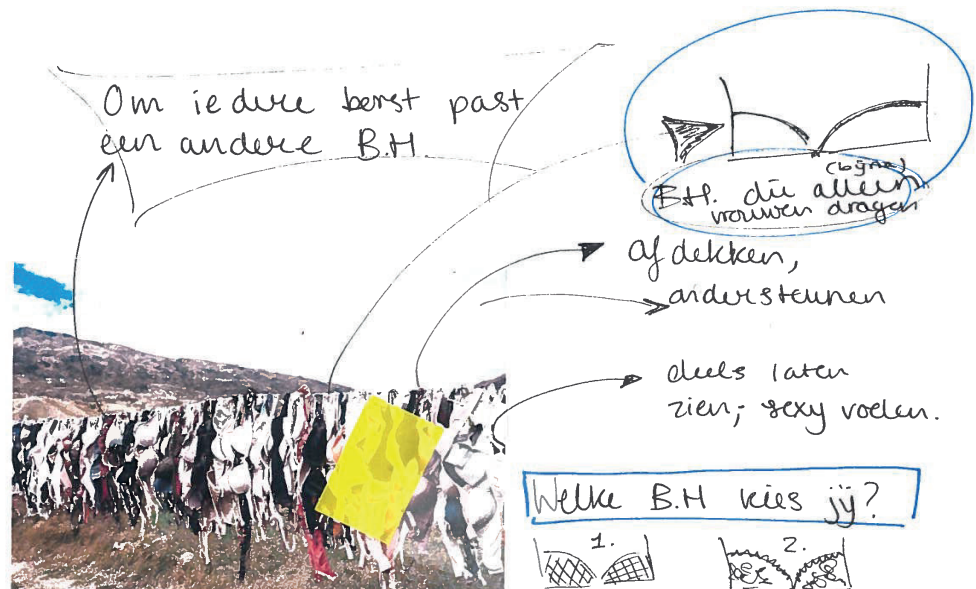 Om iedere borst past
een andere B.H.
(bijna)
B.H. die alleen
vrouwen dragen
afdekken,
ondersteunen
deels laten
zien, sexy voelen.
Welke B.H kies jij?
1.
2.